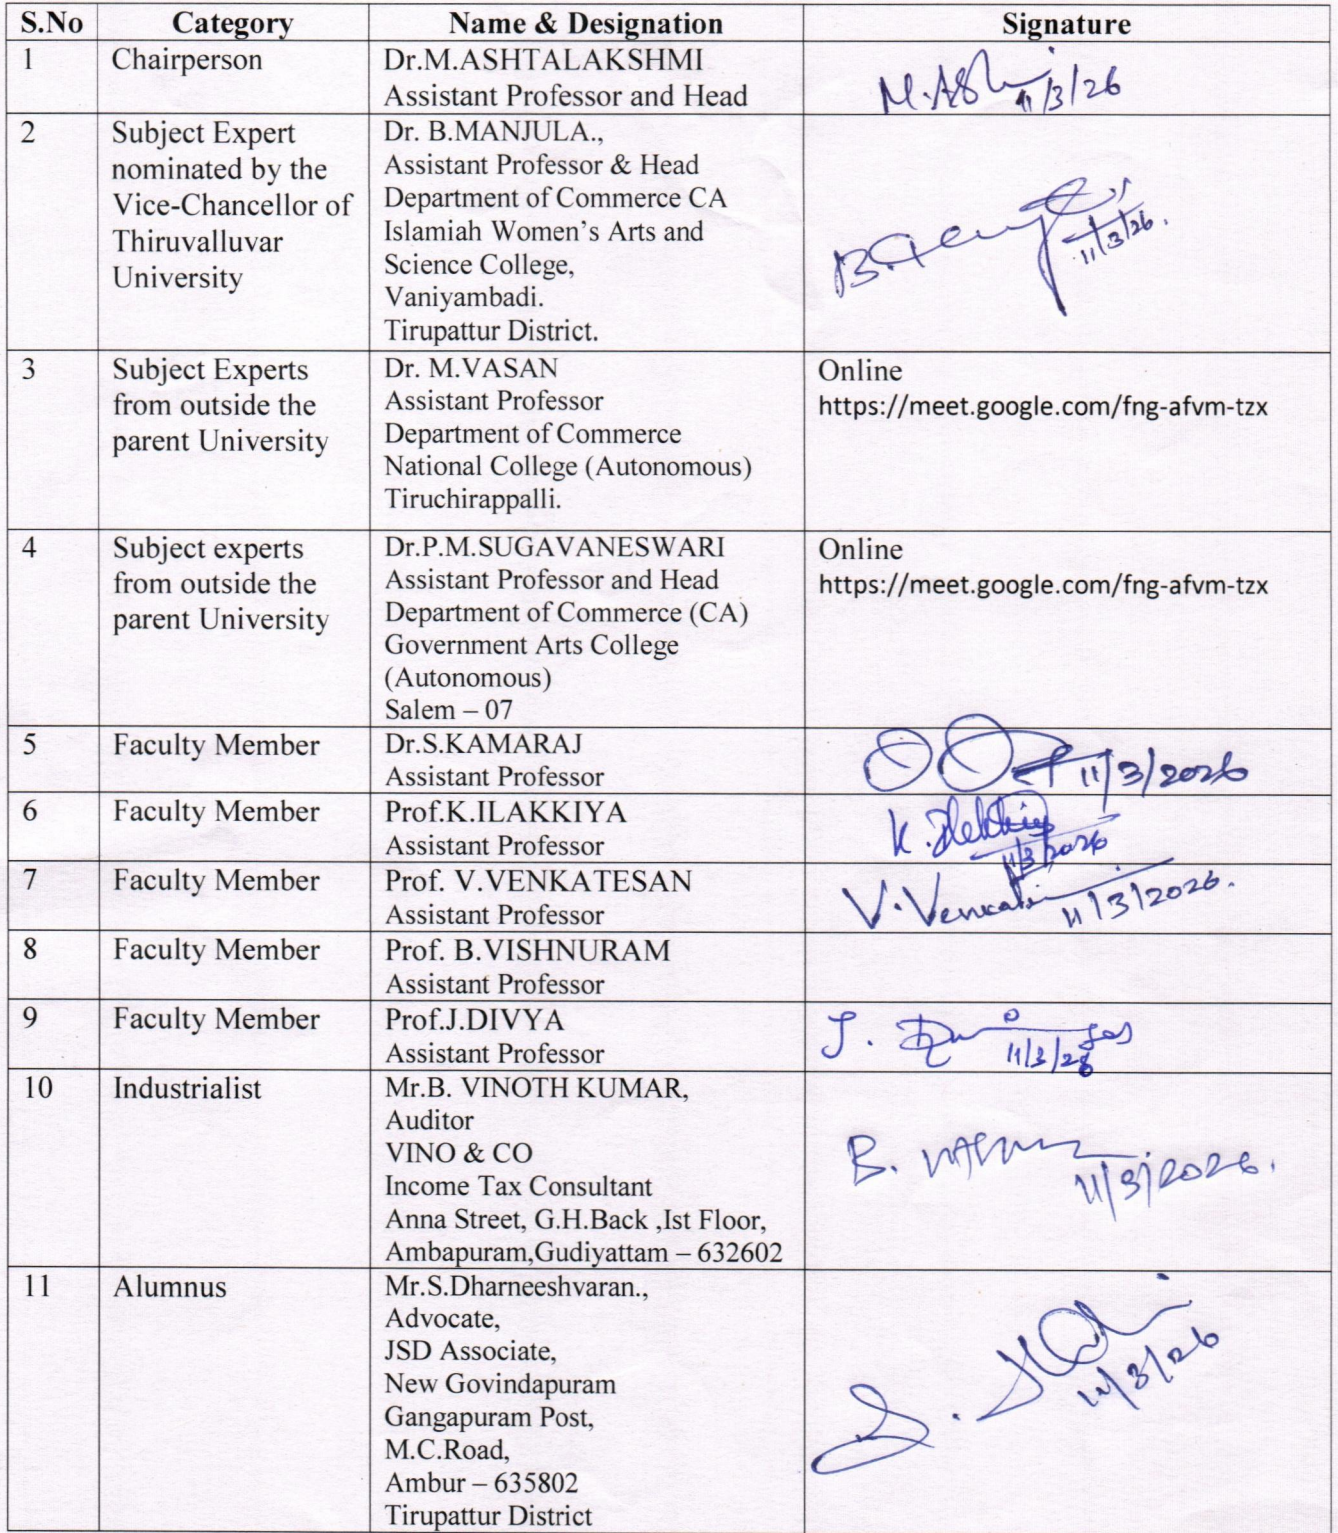 S.No Category Name & Designation Signature
1 Chairperson Dr.M.ASHTALAKSHMI
Assistant Professor and Head
M.Ash 11/3/26
2 Subject Expert
nominated by the
Vice-Chancellor of
Thiruvalluvar
University
Dr. B.MANJULA.,
Assistant Professor & Head
Department of Commerce CA
Islamiah Women's Arts and
Science College,
Vaniyambadi.
Tirupattur District.
11/3/26.
3 Subject Experts
from outside the
parent University
Dr. M.VASAN
Assistant Professor
Department of Commerce
National College (Autonomous)
Tiruchirappalli.
Online
https://meet.google.com/fng-afvm-tzx
4 Subject experts
from outside the
parent University
Dr.P.M.SUGAVANESWARI
Assistant Professor and Head
Department of Commerce (CA)
Government Arts College
(Autonomous)
Salem – 07
Online
https://meet.google.com/fng-afvm-tzx
5 Faculty Member Dr.S.KAMARAJ
Assistant Professor
11/3/2026
6 Faculty Member Prof.K.ILAKKIYA
Assistant Professor
K.
11/3/2026
7 Faculty Member Prof. V.VENKATESAN
Assistant Professor
V.
11/3/2026.
8 Faculty Member Prof. B.VISHNURAM
Assistant Professor
9 Faculty Member Prof.J.DIVYA
Assistant Professor
J.
11/3/26
10 Industrialist Mr.B. VINOTH KUMAR,
Auditor
VINO & CO
Income Tax Consultant
Anna Street, G.H.Back ,Ist Floor,
Ambapuram,Gudiyattam – 632602
B.
11/3/2026.
11 Alumnus Mr.S.Dharneeshvaran.,
Advocate,
JSD Associate,
New Govindapuram
Gangapuram Post,
M.C.Road,
Ambur – 635802
Tirupattur District
S.
11/3/26